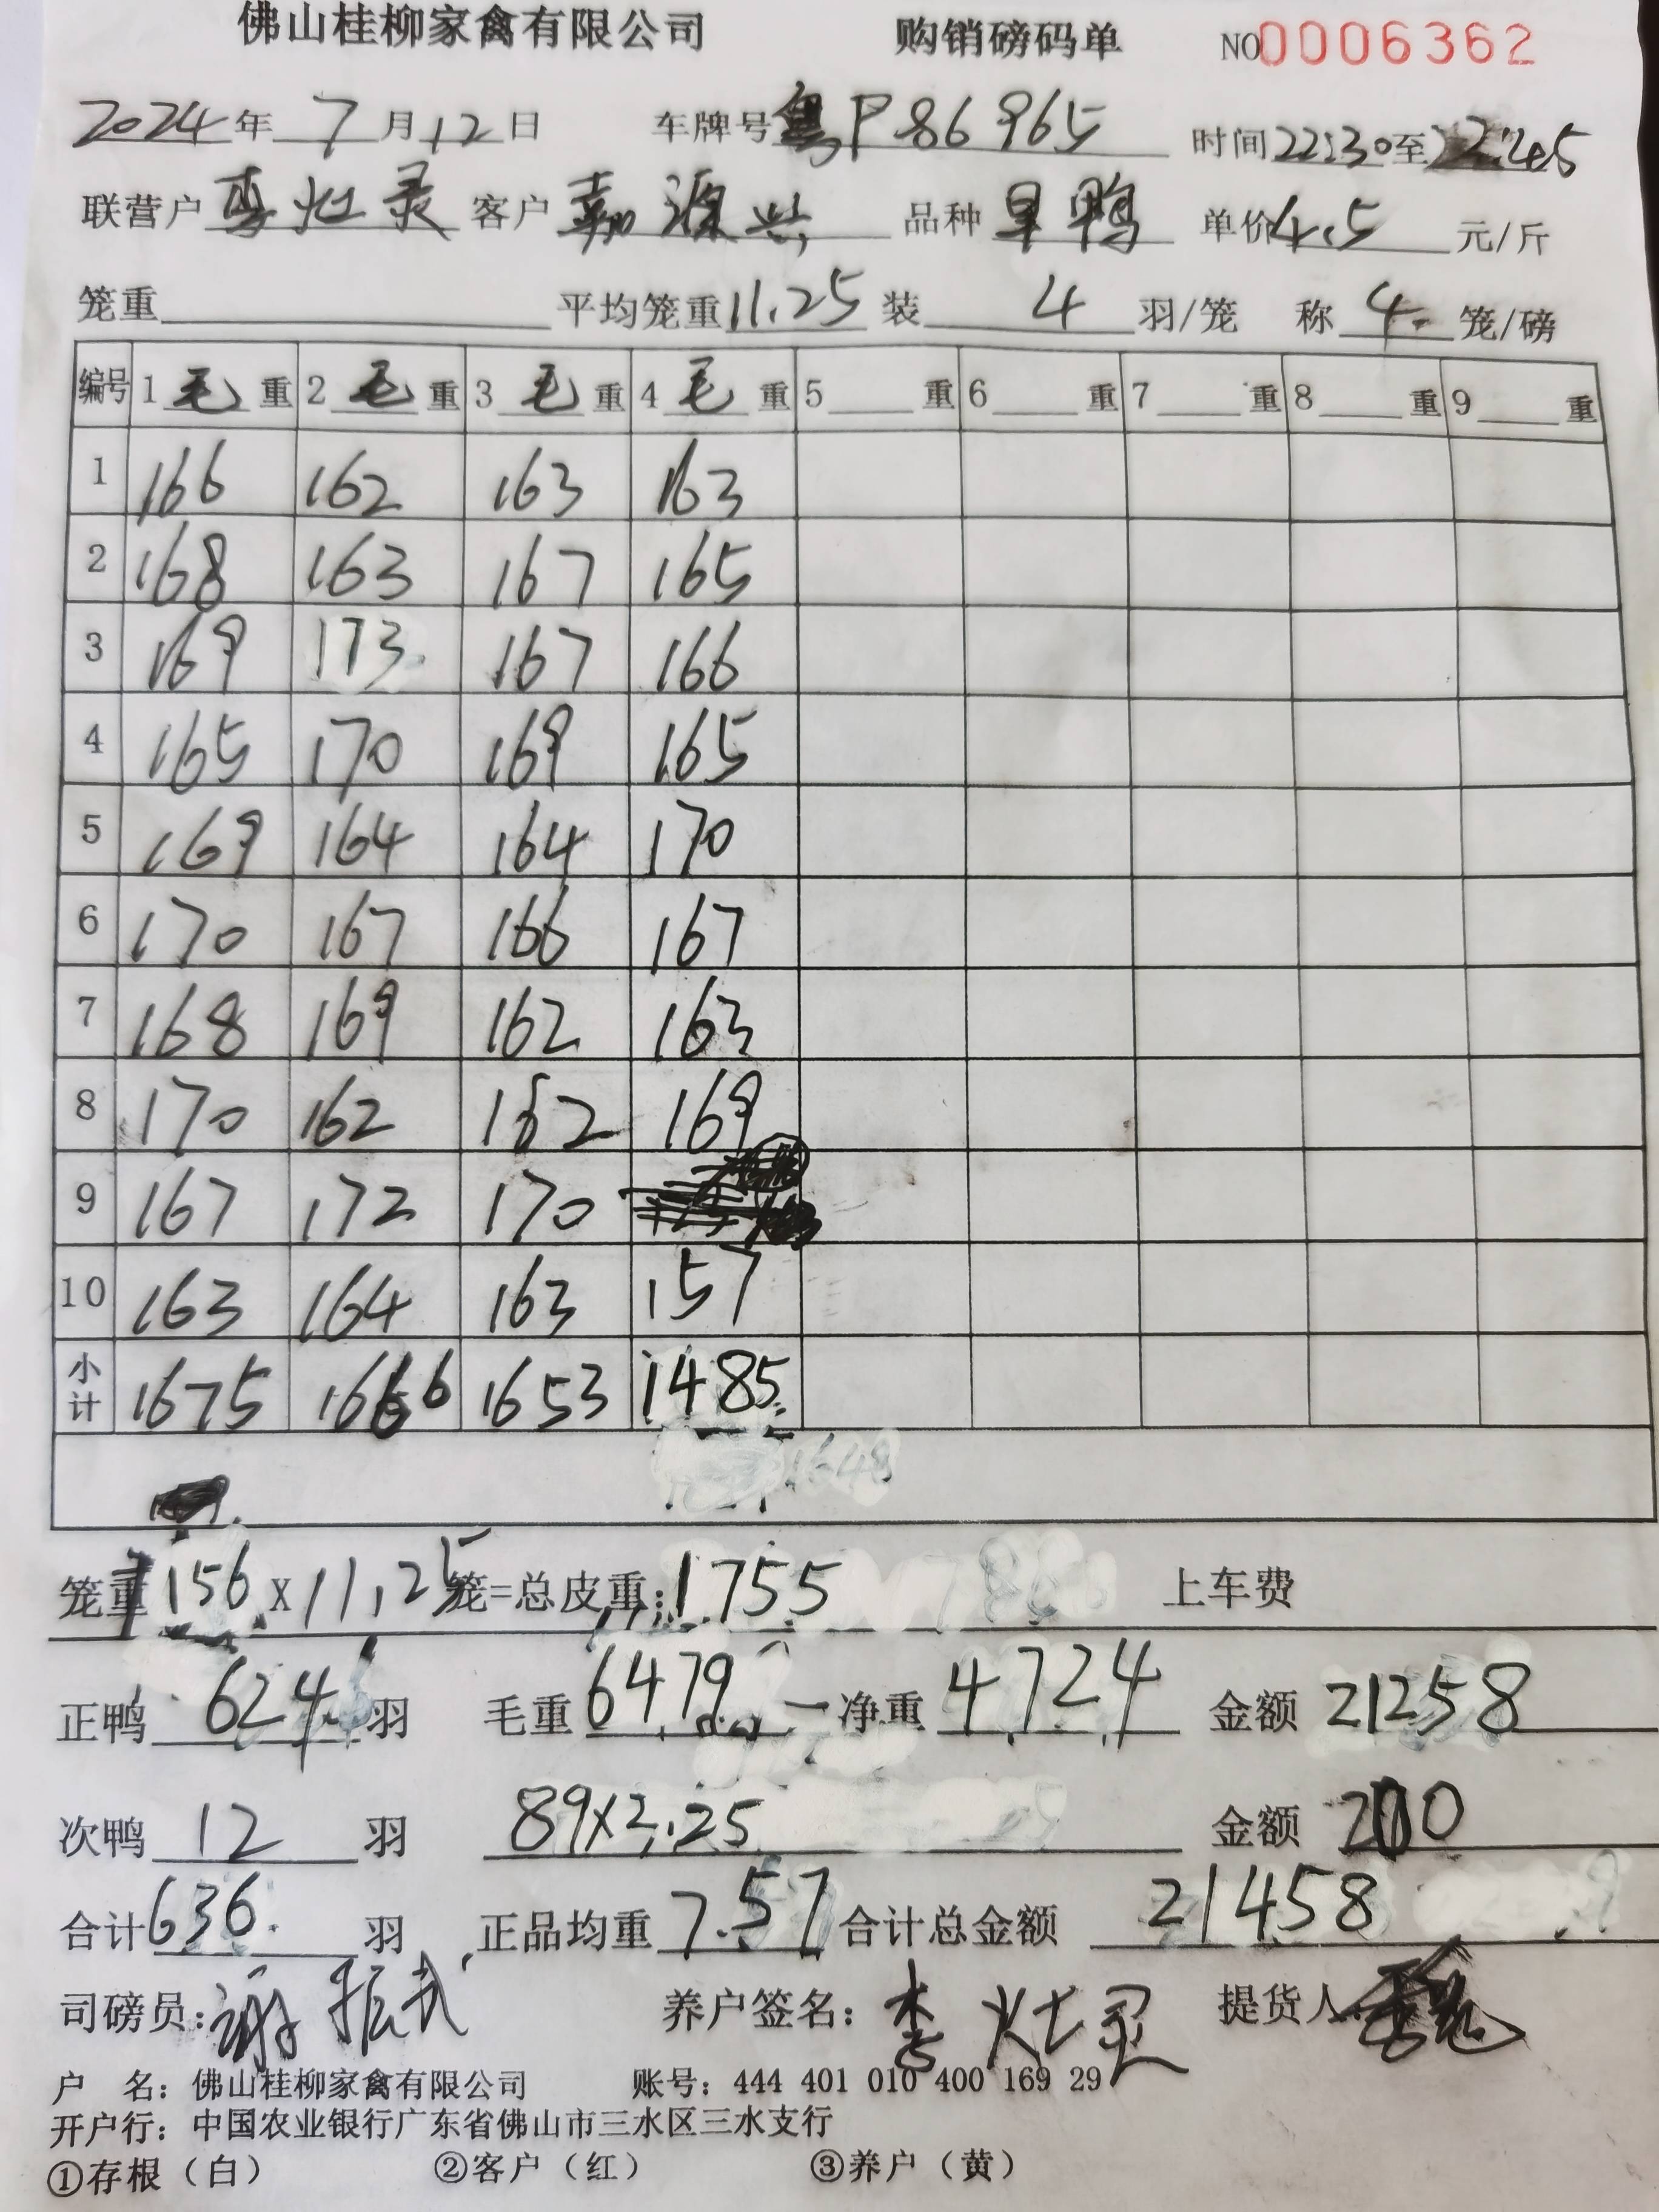 佛山桂柳家禽有限公司 购销磅码单 NO0006362
2024年7月12日 车牌号粤P86965 时间22:30至22:45
联营户李灶灵 客户嘉源兴 品种旱鸭 单价4.5元/斤
笼重 平均笼重11.25 装4羽/笼 称4笼/磅
编号 1毛重 2毛重 3毛重 4毛重 5重 6重 7重 8重 9重
1 166 162 163 163
2 168 163 167 165
3 169 173 167 166
4 165 170 169 165
5 169 164 164 170
6 170 167 166 167
7 168 169 162 163
8 170 162 162 169
9 167 172 170
10 163 164 163 157
小计 1675 1666 1653 1485
1648
笼重156X11.25笼=总皮重:1755 上车费
正鸭624羽 毛重6479-净重4724 金额21258
次鸭12羽 89X2.25 金额200
合计636.羽 正品均重7.57 合计总金额21458
司磅员:谢振武 养户签名:李灶灵 提货人:
户 名:佛山桂柳家禽有限公司 账号:444 401 010 400 169 29
开户行:中国农业银行广东省佛山市三水区三水支行
①存根(白) ②客户(红) ③养户(黄)